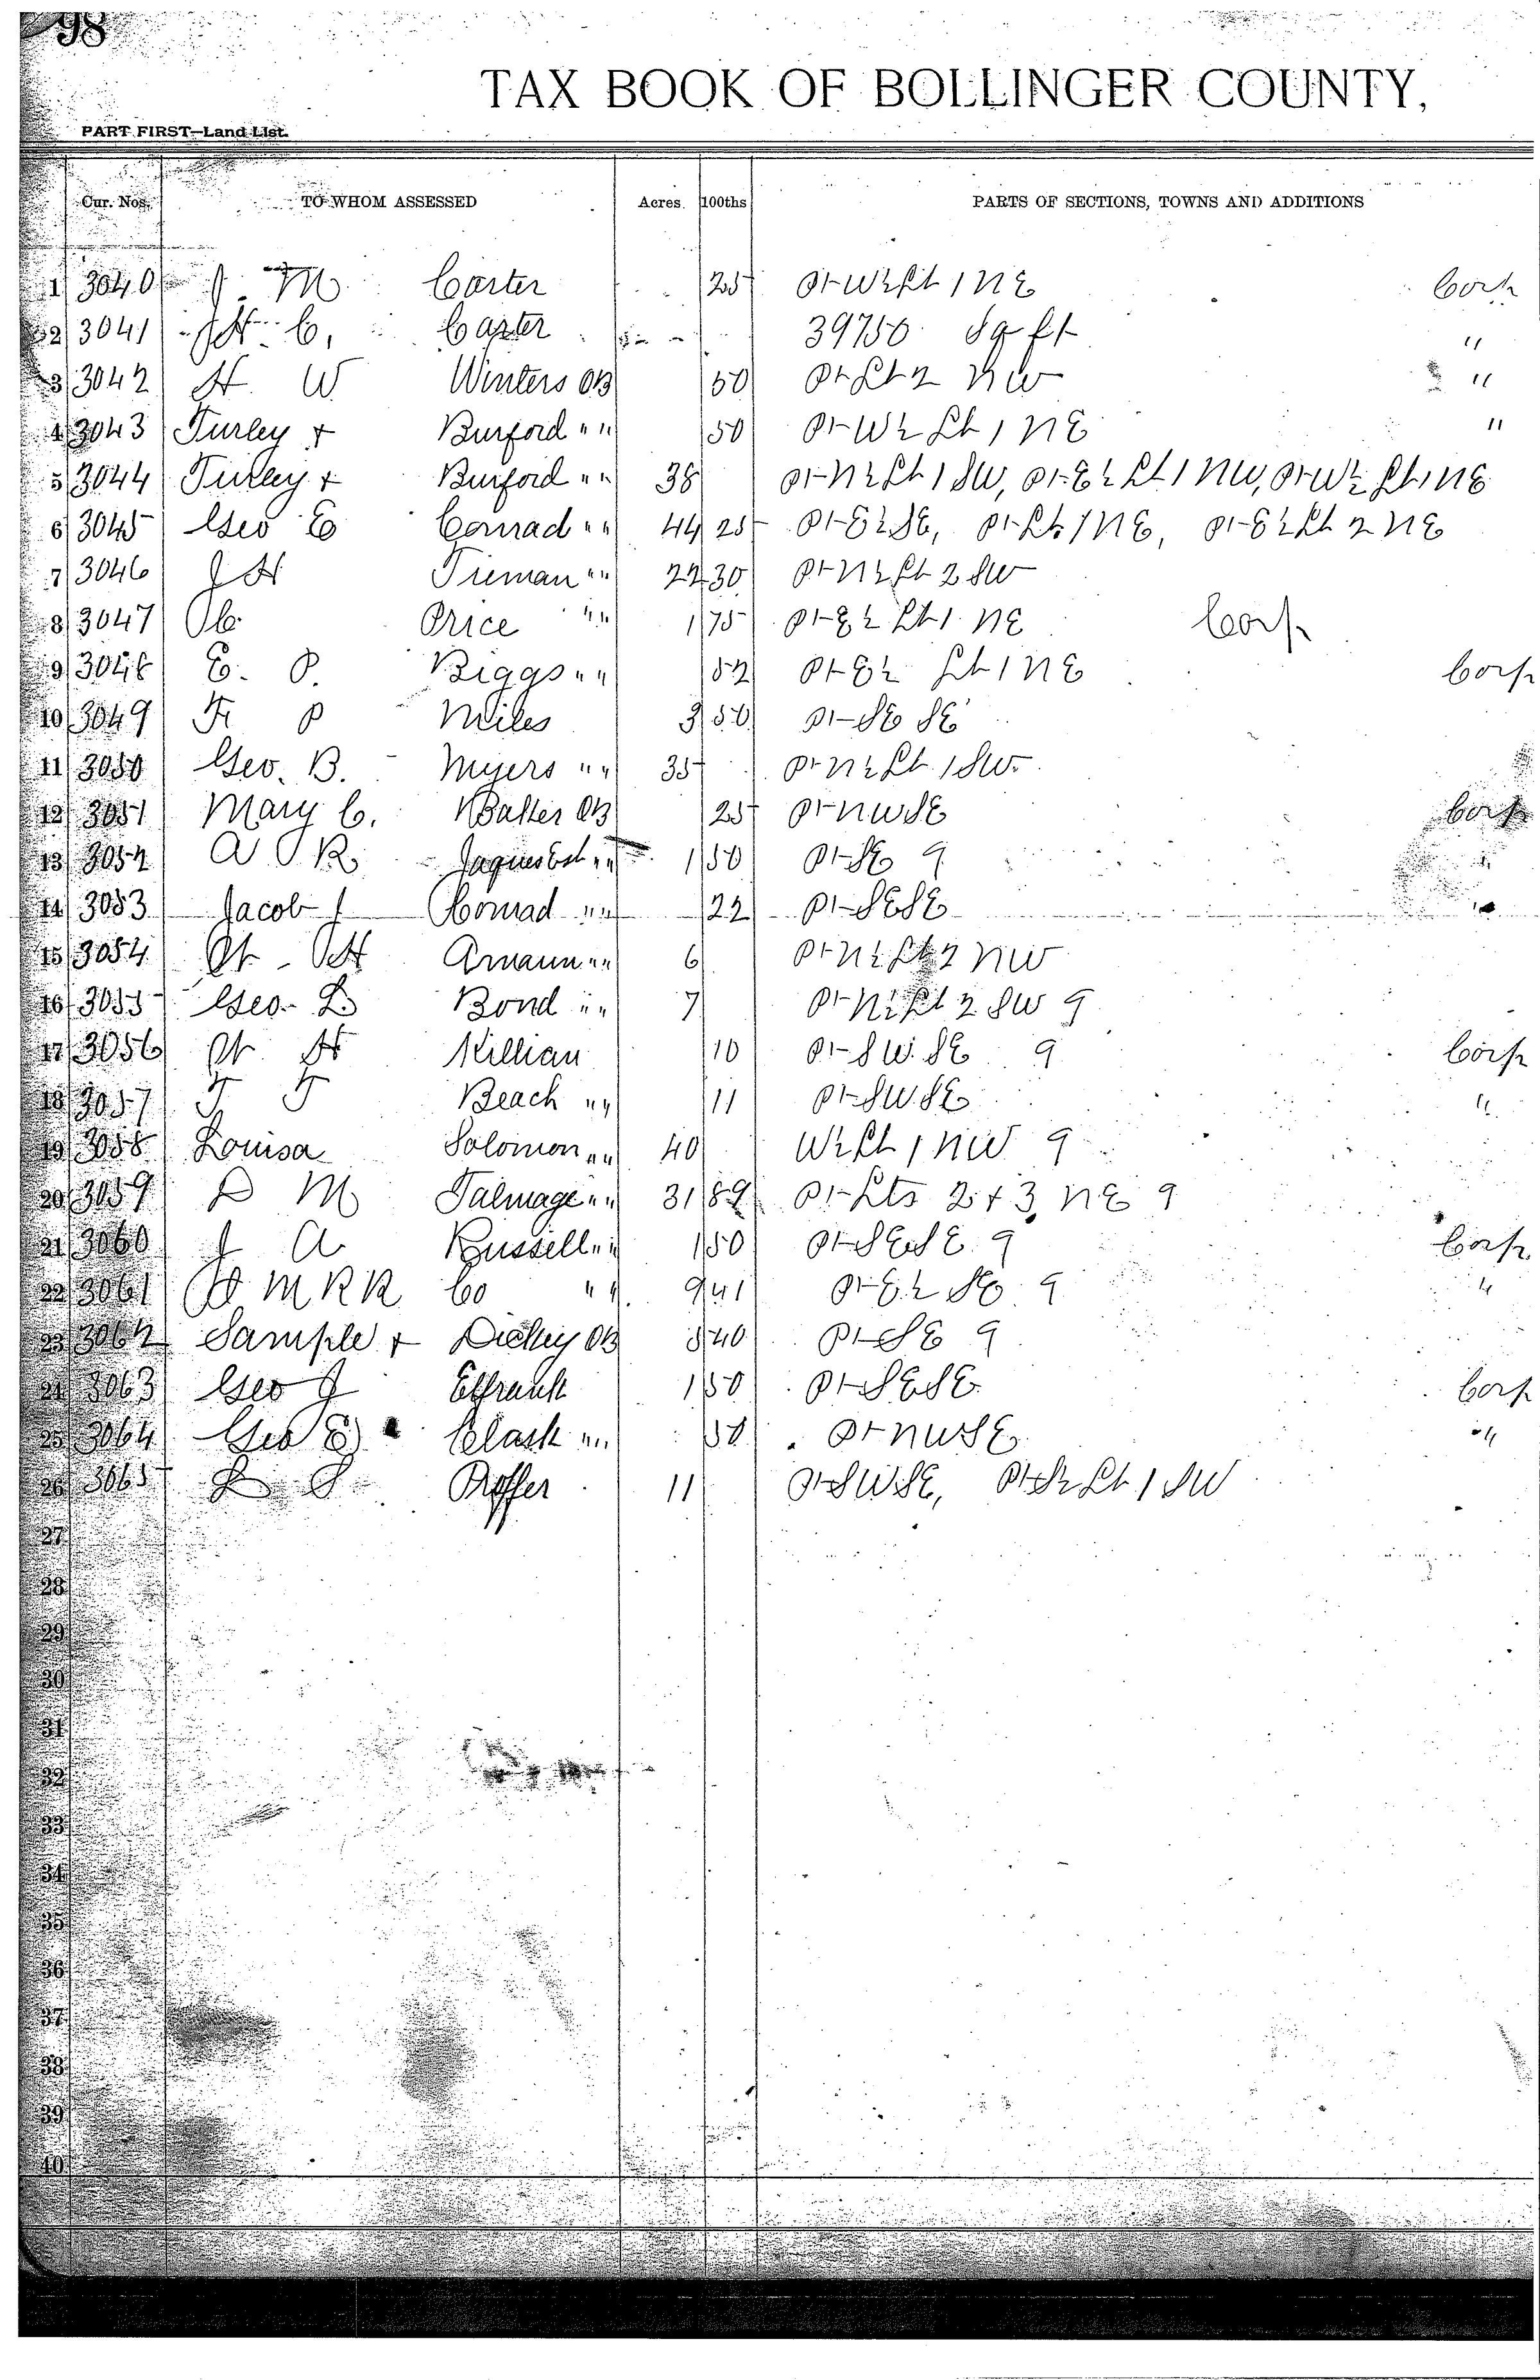 98
TAX BOOK OF BOLLINGER COUNTY,
PART FIRST—Land List.
Cur. Nos. TO WHOM ASSESSED Acres 100ths PARTS OF SECTIONS, TOWNS AND ADDITIONS
1 3040 J. M. Carter 25 Pt W½ Lt 1 NE Corp
2 3041 H. C. Carter 39750 Sq ft "
3 3042 H. W Winters OB 50 Pt Lt 2 NW "
4 3043 Turley + Burford " " 50 Pt W½ Lt 1 NE "
5 3044 Turley + Burford " " 38 Pt N½ Lt 1 SW, Pt E½ Lt 1 NW, Pt W½ Lt 1 NE
6 3045 Geo E Conrad " " 44 25 Pt E½ SE, Pt Lt 1 NE, Pt E½ Lt 2 NE
7 3046 J H Tieman " " 22 30 Pt N½ Lt 2 SW
8 3047 Price " " 1 75 Pt E½ Lt 1 NE Corp
9 3048 E. P. Biggs " " 52 Pt E½ Lt 1 NE Corp
10 3049 P Miles 3 50 Pt SE SE
11 3050 Geo. B. Myers " " 35 Pt N½ Lt 1 SW
12 3051 Mary C. Walker OB 25 Pt NW SE Corp
13 3052 A R Jaques Est " " 1 50 Pt SE 9 "
14 3053 Jacob J Conrad " " 22 Pt SE SE "
15 3054 H Amann " " 6 Pt N½ Lt 2 NW
16 3055 Geo. L Bond " " 7 Pt N½ Lt 2 SW 9
17 3056 H Killian 10 Pt SW SE 9 Corp
18 3057 F F Beach " " 11 Pt SW SE "
19 3058 Louisa Solomon " " 40 W½ Lt 1 NW 9
20 3059 D M Talmage " " 31 89 Pt Lts 2 + 3 NE 9
21 3060 J A Russell " " 1 50 Pt SE SE 9 Corp
22 3061 M R R Co " " 9 41 Pt E½ SE 9 "
23 3062 Sample + Dickey OB 8 40 Pt SE 9
24 3063 Geo J Effrank 1 50 Pt SE SE Corp
25 3064 Geo E Clark " " 50 Pt NW SE "
26 3065 Proffer 11 Pt SW SE, Pt S½ Lt 1 SW
27
28
29
30
31
32
33
34
35
36
37
38
39
40